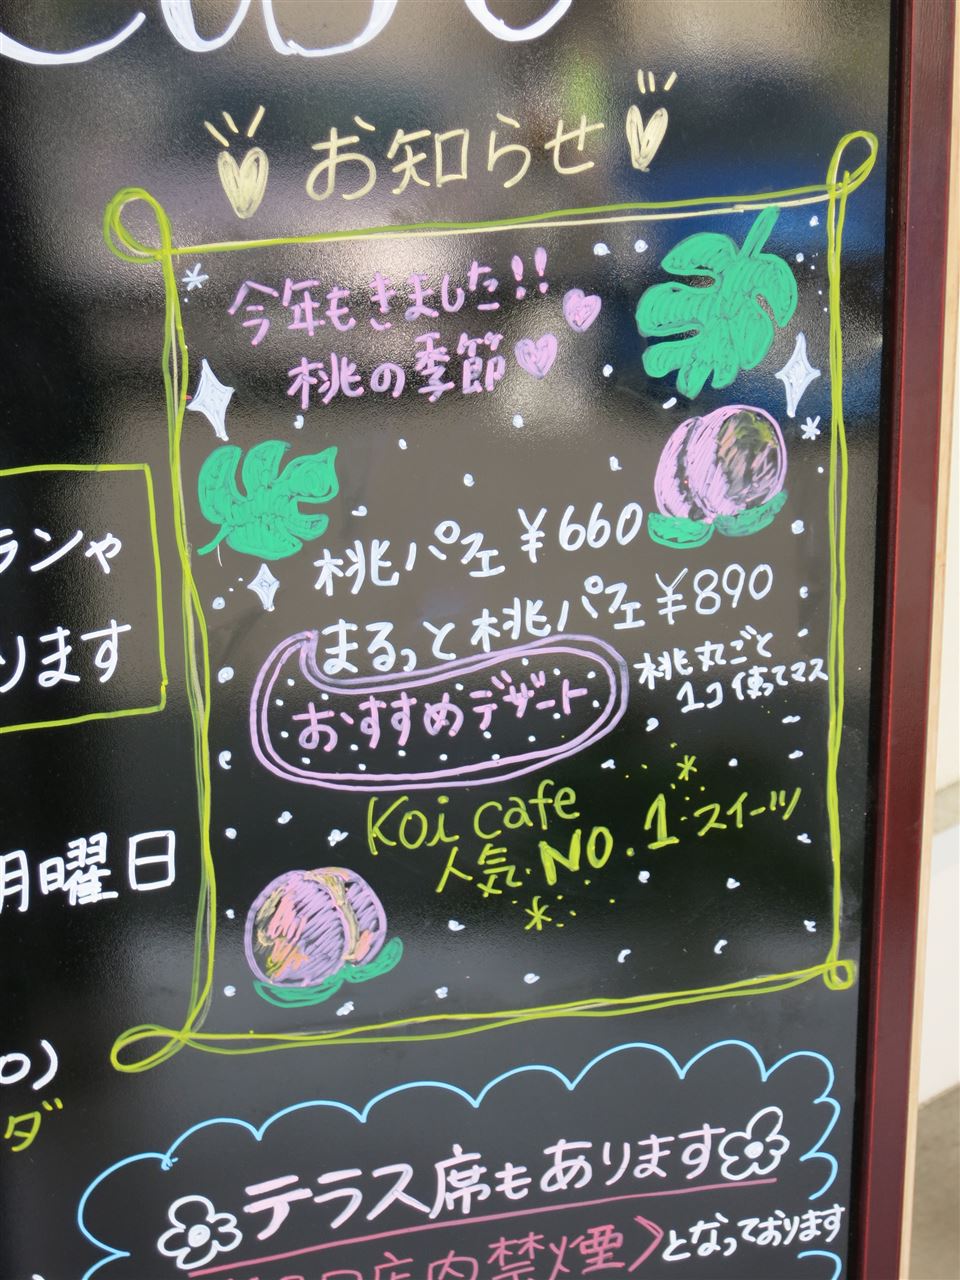 お知らせ
今年もきました!!
桃の季節
桃パフェ ¥660
まるっと桃パフェ ¥890
桃丸ごと
1コ使ってマス
おすすめデザート
Koi cafe
人気 NO.1 スイーツ
ランや
ります
月曜日
ダ
テラス席もあります
店内禁煙〉となっております